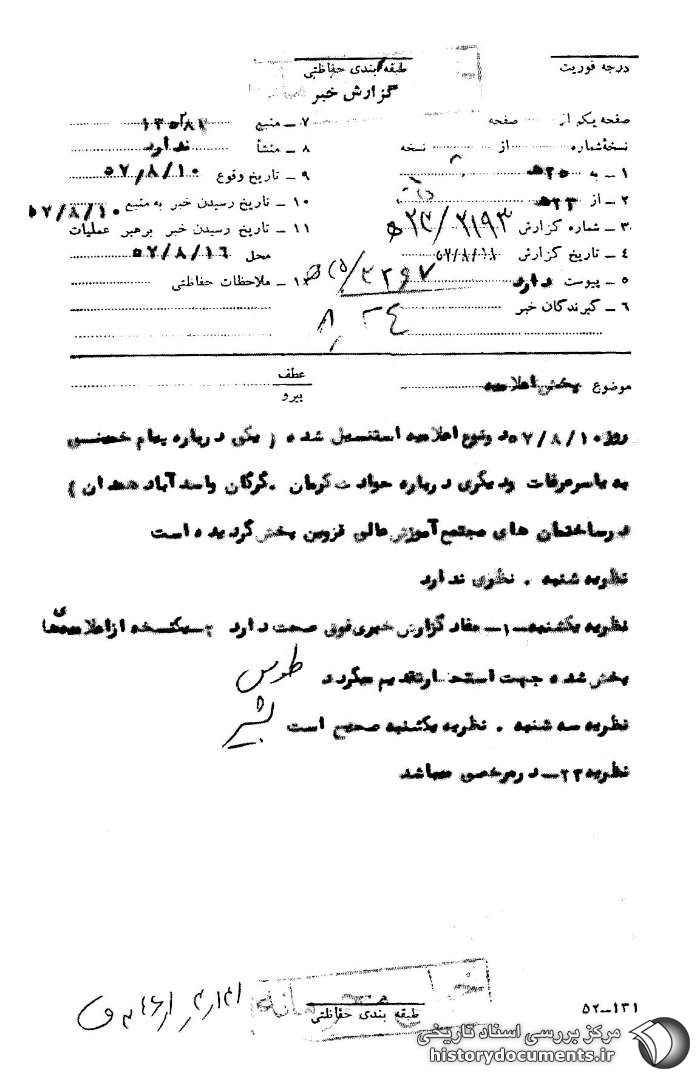 درجه فوریت
طبقه بندی حفاظتی
گزارش خبر
صفحه یکم از صفحه
نسخهٔ شماره از نسخه
۱ ـ به ۲۵هـ
۲ ـ از ۲۳هـ
۳ ـ شماره گزارش ۲۱۹۳/۲۳هـ
۴ ـ تاریخ گزارش ۵۷/۸/۱۸
۵ ـ پیوست دارد
۶ ـ گیرندگان خبر
۷ ـ منبع
۸ ـ منشأ ندارد
۹ ـ تاریخ وقوع ۵۷/۸/۱۰
۱۰ ـ تاریخ رسیدن خبر به منبع ۵۷/۸/۱۰
۱۱ ـ تاریخ رسیدن خبر برهبر عملیات
محل ۵۷/۸/۱۶
ـ ملاحظات حفاظتی
۸/۲۴
موضوع پخش اعلامیه
عطف
پیرو
روز ۵۷/۸/۱۰ دونوع اعلامیه استنسیل شده ( یکی درباره پیام خمینی
به یاسرعرفات ودیگری درباره حوادث کرمان . گرگان واسدآباد همدان )
درساختمان های مجتمع آموزش عالی قزوین پخش گردیده است
نظریه شنبه . نظری ندارد
نظریه یکشنبه ـ ۱ ـ مفاد گزارش خبری فوق صحت دارد ۲ ـ یکنسخه ازاعلامیه‌های
پخش شده جهت استحضار تقدیم میگردد طوس
نظریه سه شنبه . نظریه یکشنبه صحیح است بشیر
نظریه ۲۳ هـ ـ درمرخصی میباشد
خیلی محرمانه
طبقه بندی حفاظتی
۵۲ــ۱۳۱
مرکز بررسی اسناد تاریخی
historydocuments.ir